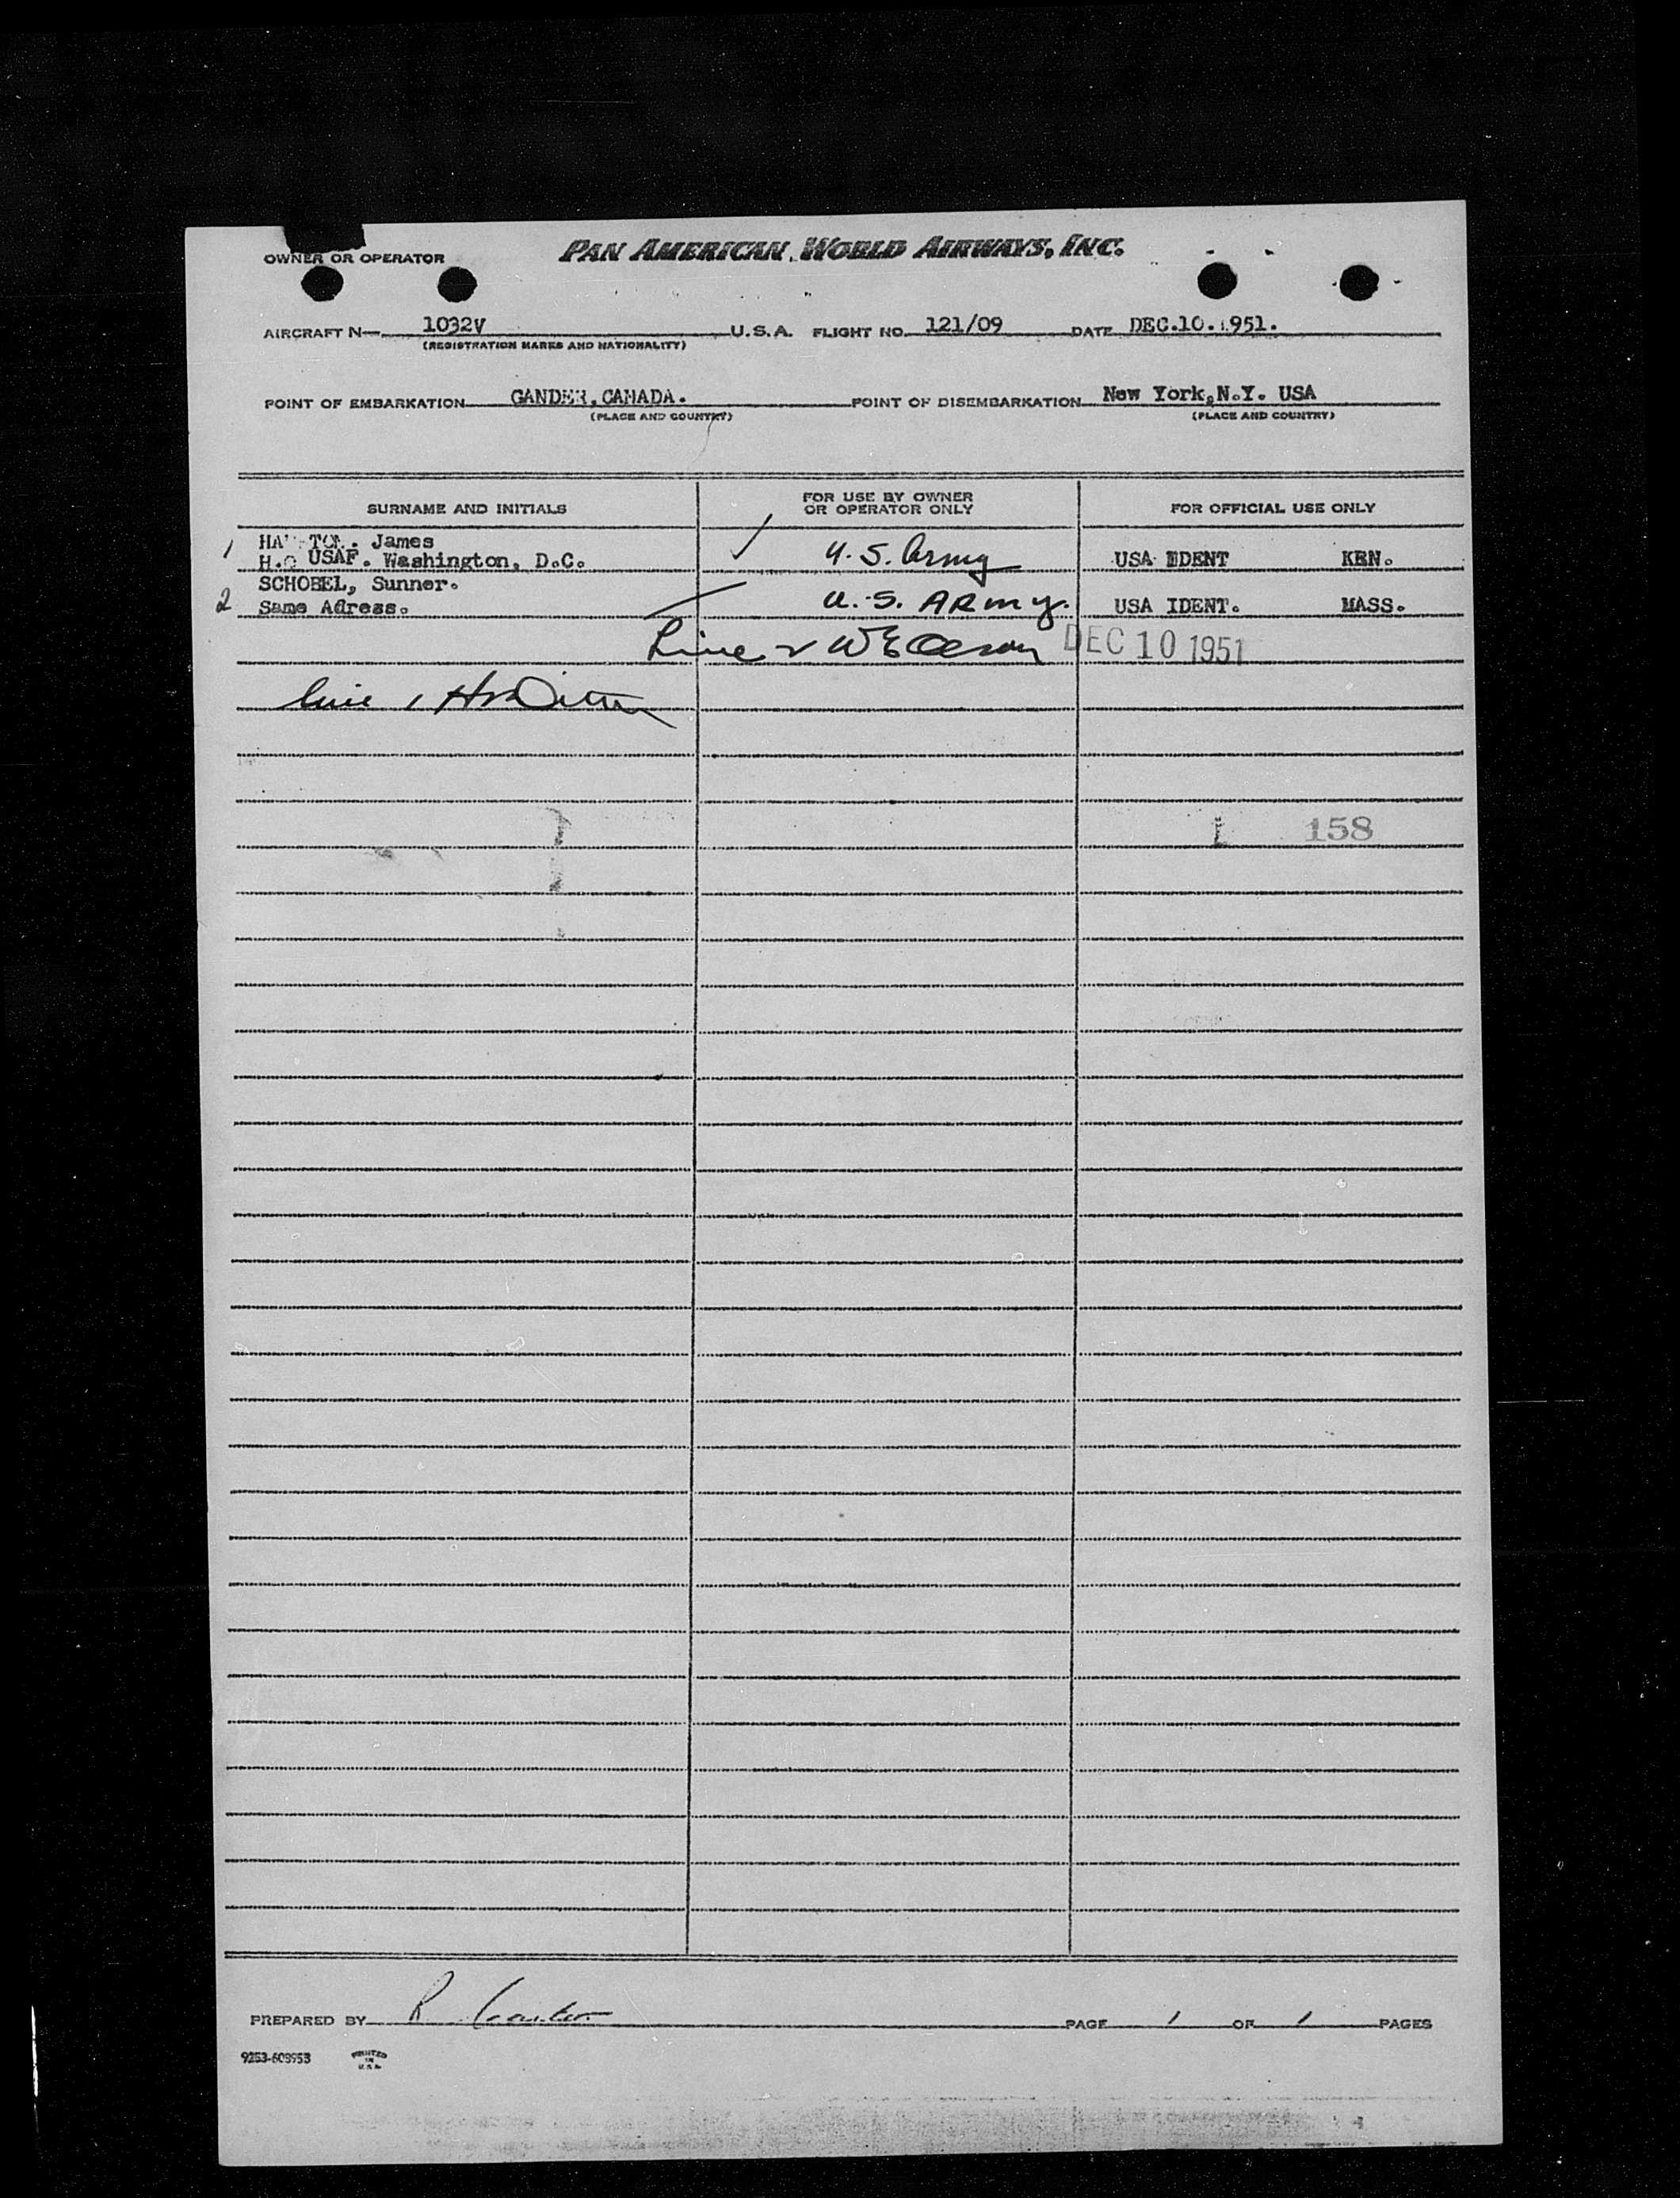 OWNER OR OPERATOR PAN AMERICAN WORLD AIRWAYS, INC.
AIRCRAFT N— 1032V U.S.A. FLIGHT NO. 121/09 DATE DEC.10.1951.
(REGISTRATION MARKS AND NATIONALITY)
POINT OF EMBARKATION GANDER, CANADA. POINT OF DISEMBARKATION New York, N.Y. USA
(PLACE AND COUNTRY) (PLACE AND COUNTRY)
SURNAME AND INITIALS FOR USE BY OWNER OR OPERATOR ONLY FOR OFFICIAL USE ONLY
1 James
H.Q USAF. Washington, D.C. U.S. Army USA IDENT KEN.
SCHOBEL, Sunner.
2 Same Adress. U.S. ARmy. USA IDENT. MASS.
Line 2 DEC 10 1951
line 1
158
PREPARED BY R PAGE 1 OF 1 PAGES
9253-609953 PRINTED IN U.S.A.